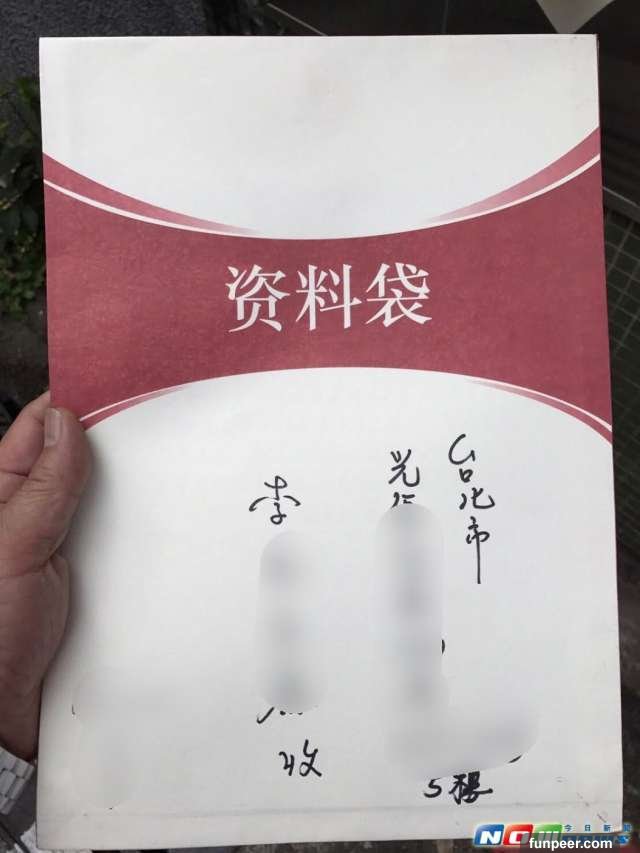 资料袋
台北市
光復
5樓
李
收
今日新聞
NOWnews
funpeer.com